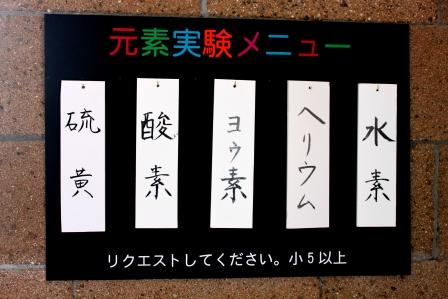 元素実験メニュー
水素
ヘリウム
ヨウ素
酸素
硫黄
リクエストしてください。小5以上